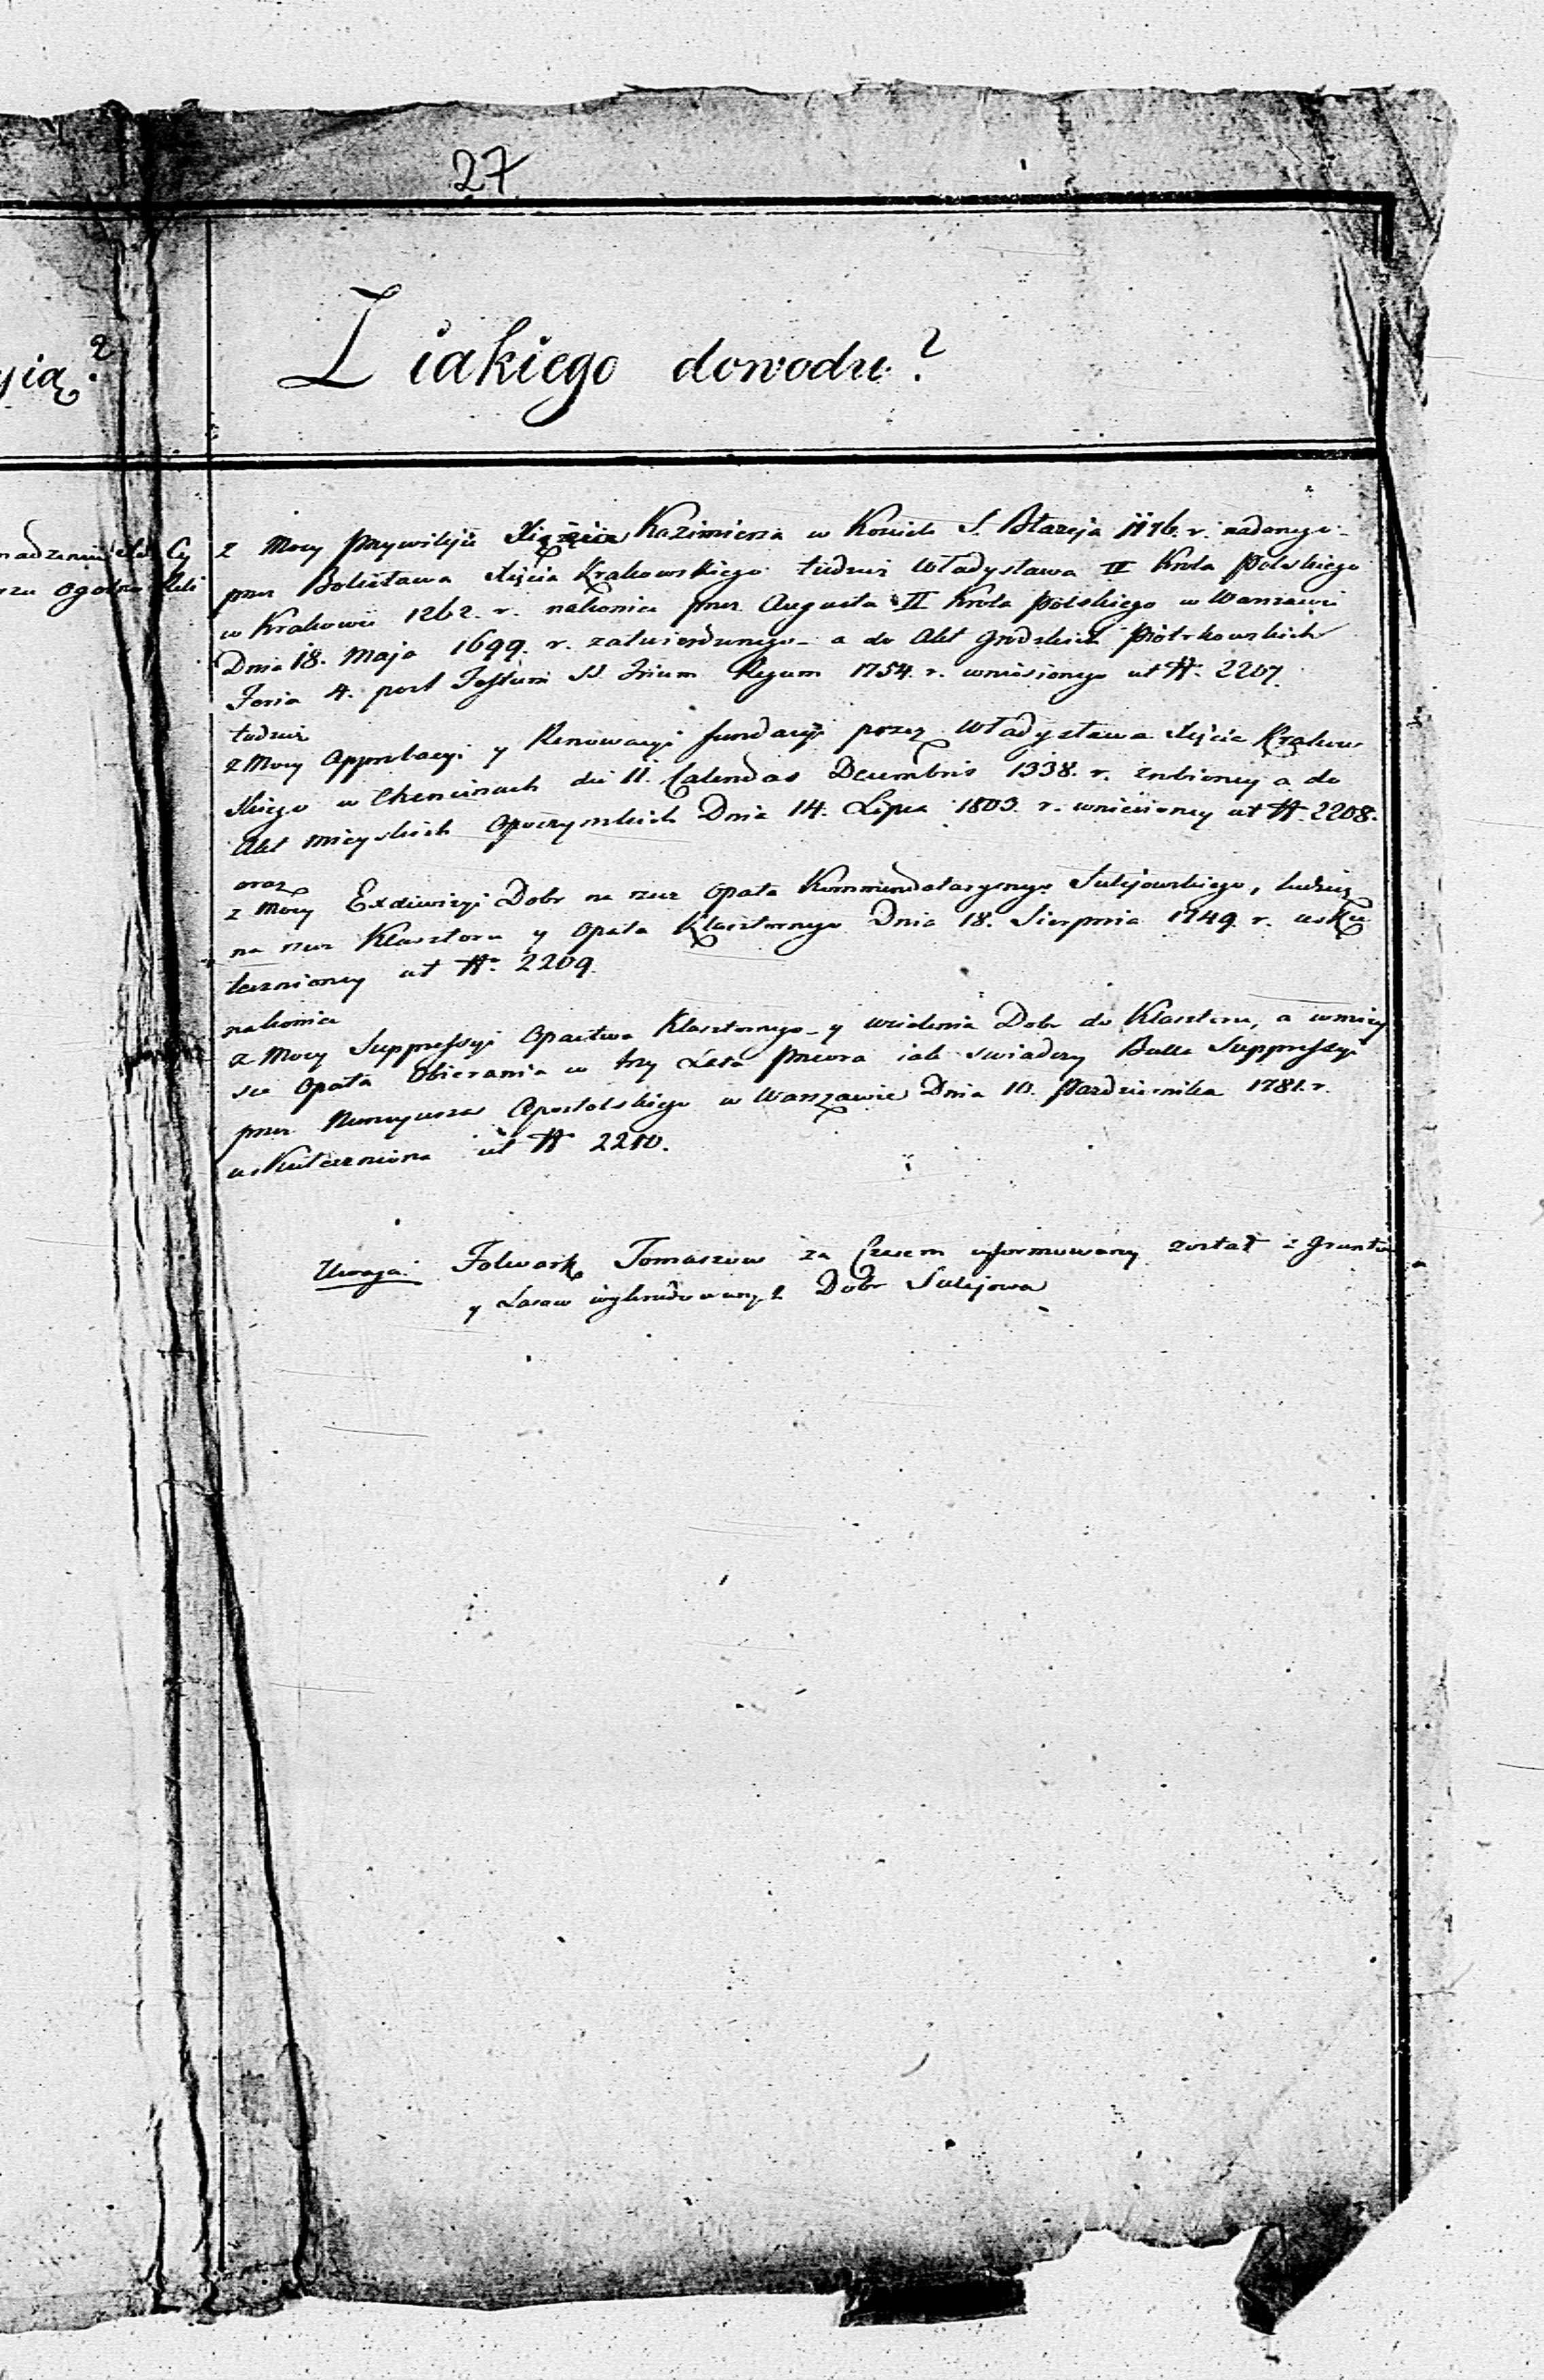 27
yią?
Z iakiego dowodu?
z Mocy Przywileju Xiążęcia Kazimierza w Kosciele S. Błażeja 1176. r. nadanego
przez Bolesława Xięcia Krakowskiego tudzież Władysława II Krola Polskiego
w Krakowie 1262. r. nakoniec przez Augusta II Krola Polskiego w Warszawie
Dnia 18. Maja 1699. r. zatwierdzonego a do Akt Grodzkich Piotrkowskich
Feria 4. post Festum SS. Trium Regum 1754. r. wniesionego ut N. 2207.
tudzież
z Mocy Approbacyi y Renowacyi fundacyi przez Władysława Xięcia Krakow
skiego w Chencinach die 11. Calendas Decembris 1338. r. zrobioney a do
Akt Mieyskich Opoczynskich Dnia 14. Lipca 1803. r. wniesioney ut N. 2208.
oraz
z Mocy Exdiwizyi Dobr na rzecz Opata Kommendataryynego Sulejowskiego, tudzież
na rzecz Klasztoru y Opata Klasztornego Dnia 18. Sierpnia 1749. r. usku
tecznioney ut N. 2209.
nakoniec
z Mocy Suppressyi Opactwa Klasztornego y wcielenia Dobr do Klasztoru, a w miey
sce Opata Obierania w trzy Lata Przeora iak swiadczy Bulla Suppressyi
przez Nuncyusza Apostolskiego w Warszawie Dnia 10. Pazdziernika 1781. r.
uskuteczniona ut N 2210.
Uwaga: Folwark Tomaszow za Czasem uformowany został z Gruntow
y Lasow Dobr Sulejowa